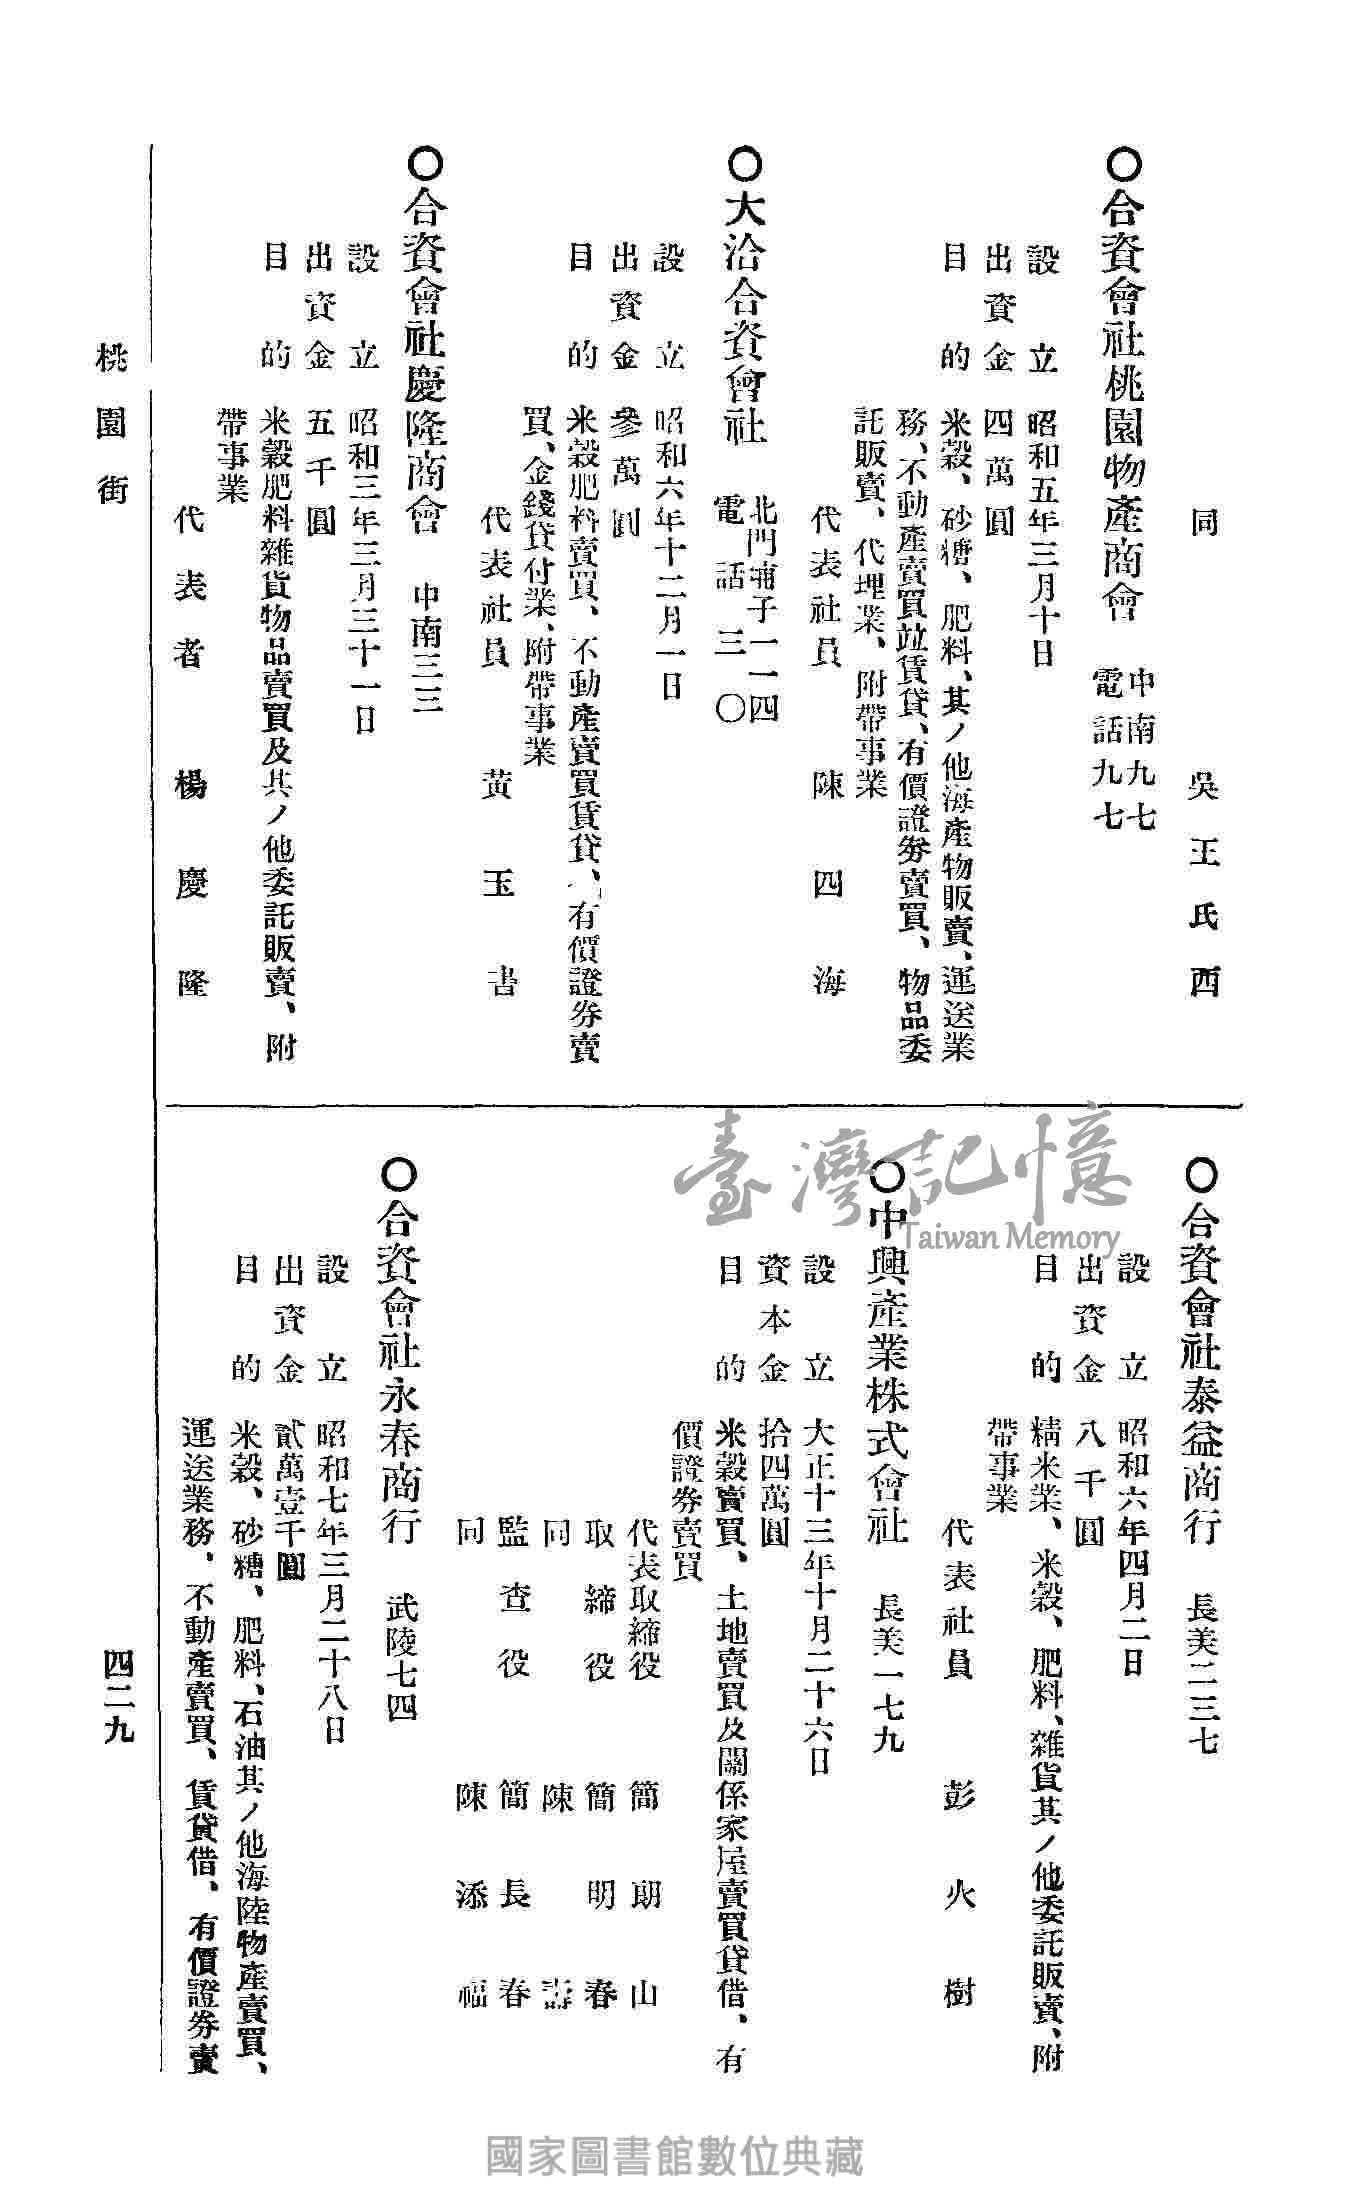 同　吳王氏西
〇合資會社桃園物產商會　中南九七
電話九七
設立　昭和五年三月十日
出資金　四萬圓
目的　米穀、砂糖、肥料、其ノ他海產物販賣、運送業
務、不動產賣買竝賃貸、有價證券賣買、物品委
託販賣、代理業、附帶事業
代表社員　陳四海
〇大治合資會社　北門埔子一一四
電話三〇
設立　昭和六年十二月一日
出資金　參萬圓
目的　米穀肥料賣買、不動產賣買賃貸、有價證券賣
買、金錢貸付業、附帶事業
代表社員　黃玉書
〇合資會社慶隆商會　中南三三
設立　昭和三年三月三十一日
出資金　五千圓
目的　米穀肥料雜貨物品賣買及其ノ他委託販賣、附
帶事業
代表者　楊慶隆
〇合資會社泰益商行　長美二三七
設立　昭和六年四月二日
出資金　八千圓
目的　精米業、米穀、肥料、雜貨其ノ他委託販賣、附
帶事業
代表社員　彭火樹
〇中興產業株式會社　長美一七九
設立　大正十三年十月二十六日
資本金　拾四萬圓
目的　米穀賣買、土地賣買及關係家屋賣買貸借、有
價證券賣買
代表取締役　簡朗山
取締役　簡明春
同　陳壽
監查役　簡長春
同　陳添福
〇合資會社永春商行　武陵七四
設立　昭和七年三月二十八日
出資金　貳萬壹千圓
目的　米穀、砂糖、肥料、石油其ノ他海陸物產賣買、
運送業務、不動產賣買、賃貸借、有價證券賣
桃園街
四二九
臺灣記憶
Taiwan Memory
國家圖書館數位典藏